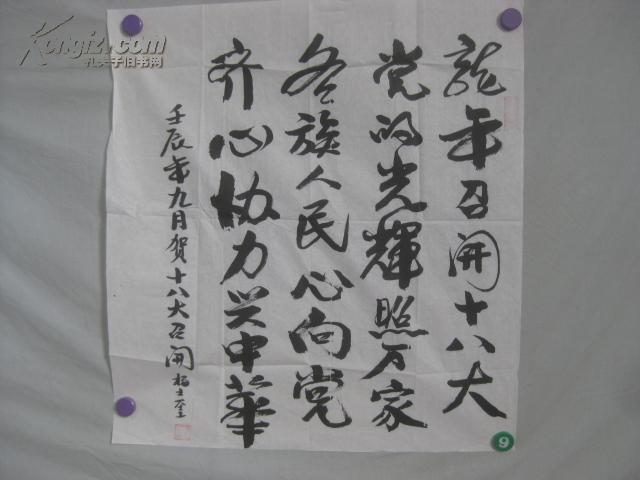 龍年召開十八大
党的光輝照万家
各族人民心向党
齐心协力兴中華
壬辰年九月贺十八大召開 杨士奎
Kongfz.com
孔夫子旧书网
9